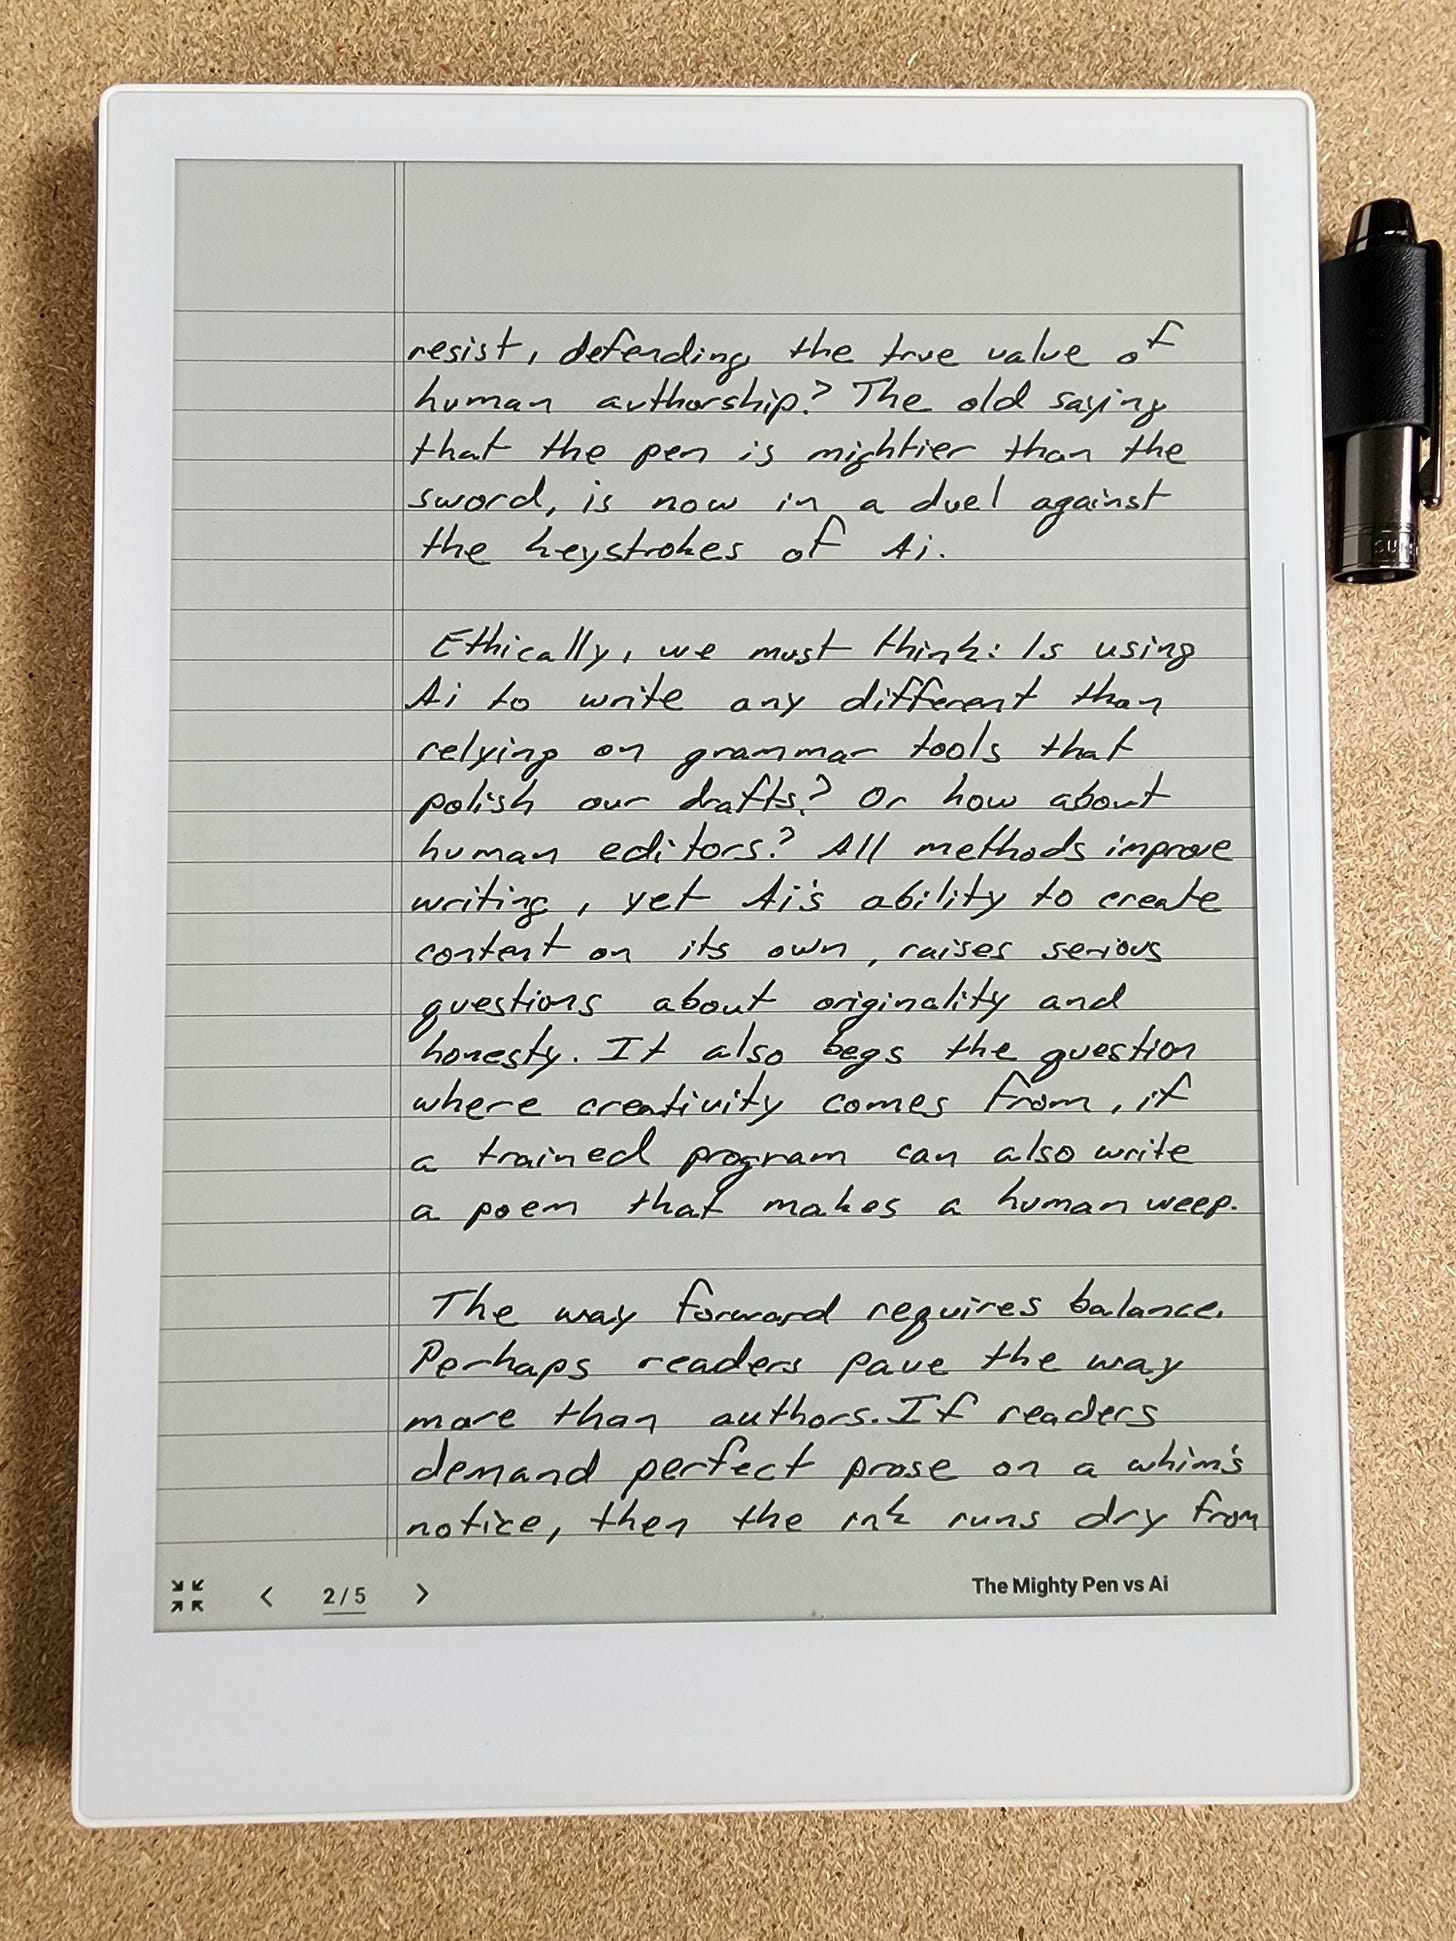 resist, defending the true value of
human authorship? The old saying
that the pen is mightier than the
sword, is now in a duel against
the keystrokes of Ai.
Ethically, we must think: Is using
Ai to write any different than
relying on grammar tools that
polish our drafts? Or how about
human editors? All methods improve
writing, yet Ai's ability to create
content on its own, raises serious
questions about originality and
honesty. It also begs the question
where creativity comes from, if
a trained program can also write
a poem that makes a human weep.
The way forward requires balance.
Perhaps readers pave the way
more than authors. If readers
demand perfect prose on a whim's
notice, then the ink runs dry from
2/5
The Mighty Pen vs Ai